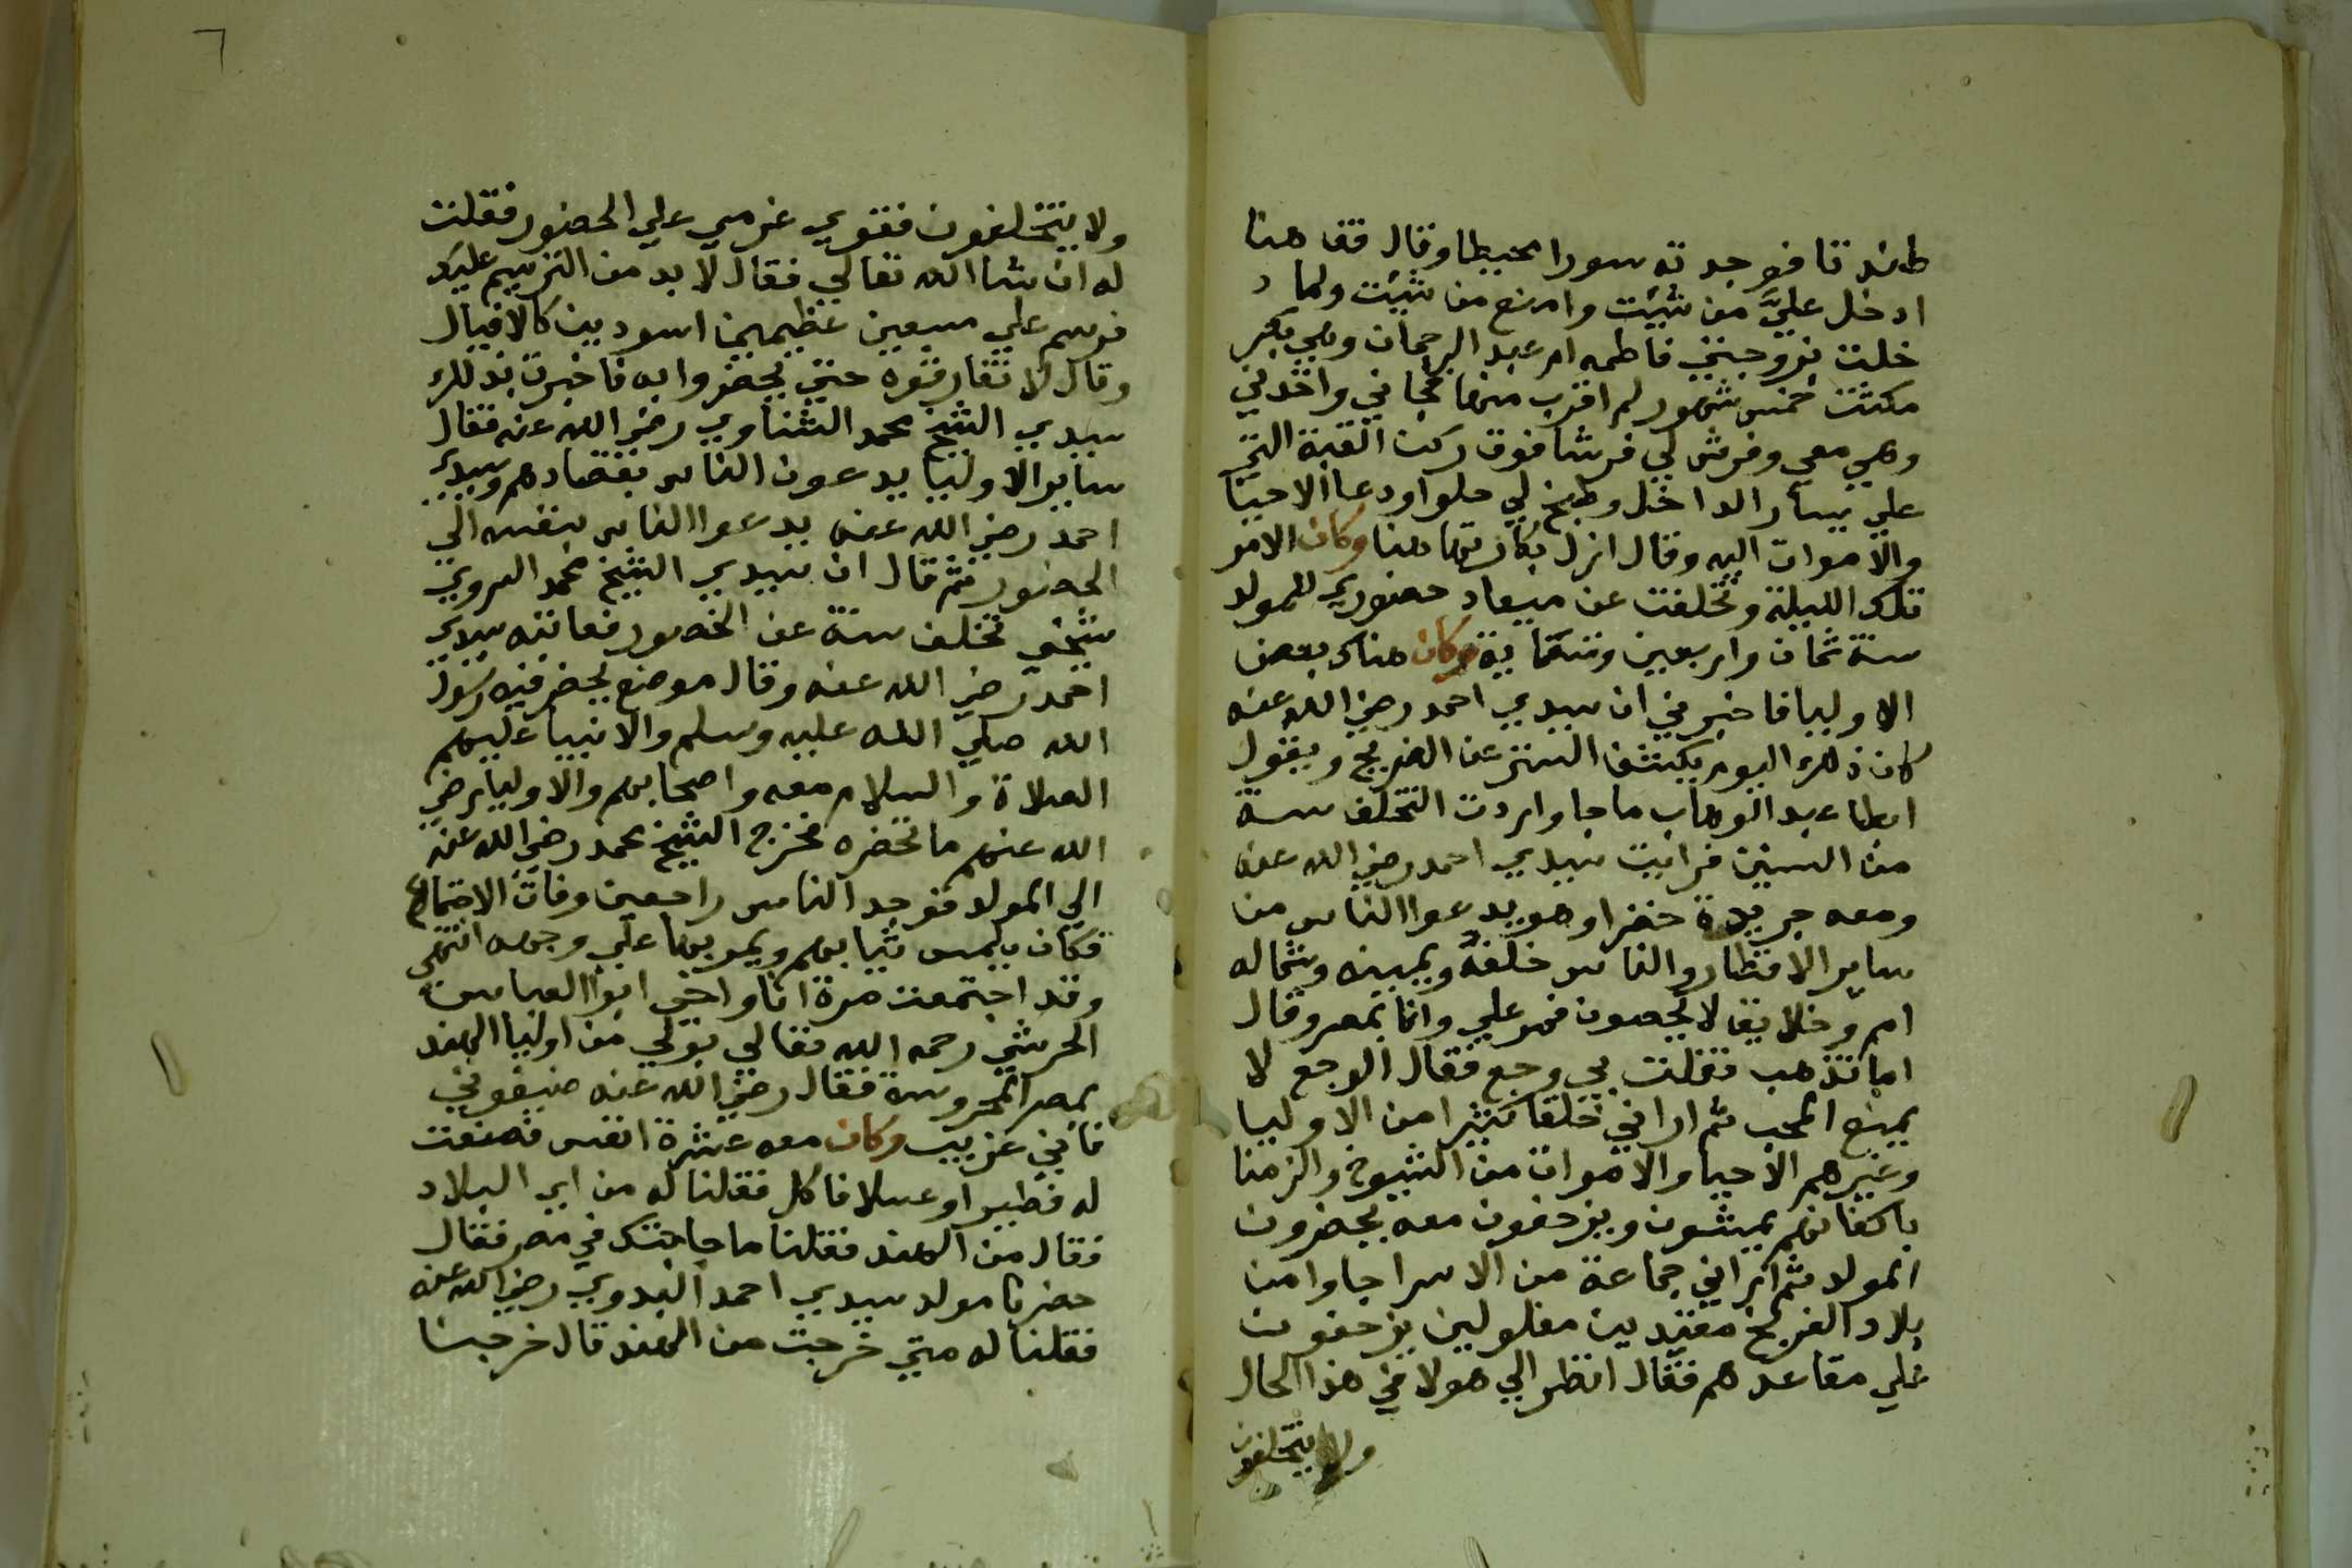 طندتا فوجدته سورا محيطا وقال قف هنا
ادخل عليَّ من شيت وامنع من شيت ولما د
خلت بزوجتي فاطمه ام عبد الرحمان وهي بكر
مكثت خمس شهور لم اقرب منها فجاني واخذني
وهي معي وفرش لي فرشا فوق ركن القبة التي
علي يسار الداخل وطبخ لي حلوا ودعا الاحيا
والاموات اليه وقال ازل بكارتها هنا وكان الامر
تلك الليلة وتخلفت عن ميعاد حضوري للمولد
سنة ثمان واربعين وتسماية وكان هناك بعض
الاوليا فاخبرني ان سيدي احمد رضي الله عنه
كان ذلك اليوم يكشف الستر عن الضريح ويقول
ابطا عبد الوهاب ما جا واردت التخلف سنة
من السنين فرايت سيدي احمد رضي الله عنه
ومعه جريدة خضرا وهو يدعوا الناس من
ساير الاقطار والناس خلفه ويمينه وشماله
امم وخلايق لا يحصون فمر علي وانا بمصر وقال
اما تذهب فقلت بي وجع فقال الوجع لا
يمنع المحب ثم اراني خلقا كثيرا من الاوليا
وغيرهم الاحيا والاموات من الشيوخ والزمنا
باكفانهم يمشون ويزحفون معه يحضرون
المولد ثم اراني جماعة من الاسرا جاوا من
بلاد الفرنج مقيدين مغلولين يزحفون
علي مقاعدهم فقال انظر الي هولا في هذا الحال
ولا يتخلفون
٦
ولا يتخلفون فقوي عزمي علي الحضور فقلت
له ان شا الله تعالي فقال لا بد من الترسيم عليك
فرسم علي سبعين عظيمين اسودين كالافيال
وقال لا تفارقوه حتي تحضروا به فاخبرت بذلك
سيدي الشيخ محمد الشناوي رضي الله عنه فقال
ساير الاوليا يدعون الناس بقصادهم وسيدي
احمد رضي الله عنه يدعوا الناس بنفسه الي
الحضور ثم قال ان سيدي الشيخ محمد السروي
شيخي تخلف سنة عن الحضور فعاتبه سيدي
احمد رضي الله عنه وقال موضع يحضر فيه رسول
الله صلي الله عليه وسلم والانبيا عليهم
الصلاة والسلام معه واصحابهم والاوليا رضي
الله عنهم ما تحضره فخرج الشيخ محمد رضي الله عنه
الي المولد فوجد الناس راجعين وفات الاجتماع
فكان يلمس ثيابهم ويمر بها علي وجهه انتهي
وقد اجتمعت مرة انا واخي ابوا العباس
الحريثي رحمه الله تعالي بولي من اوليا الهند
بمصر المحروسة فقال رضي الله عنه ضيفوني
فاني غريب وكان معه عشرة انفس فصنعت
له فطيرا وعسلا فاكل فقلنا له من اي البلاد
فقال من الهند فقلنا ما حاجتك في مصر فقال
حضرنا مولد سيدي احمد البدوي رضي الله عنه
فقلنا له متي خرجت من الهند قال خرجنا